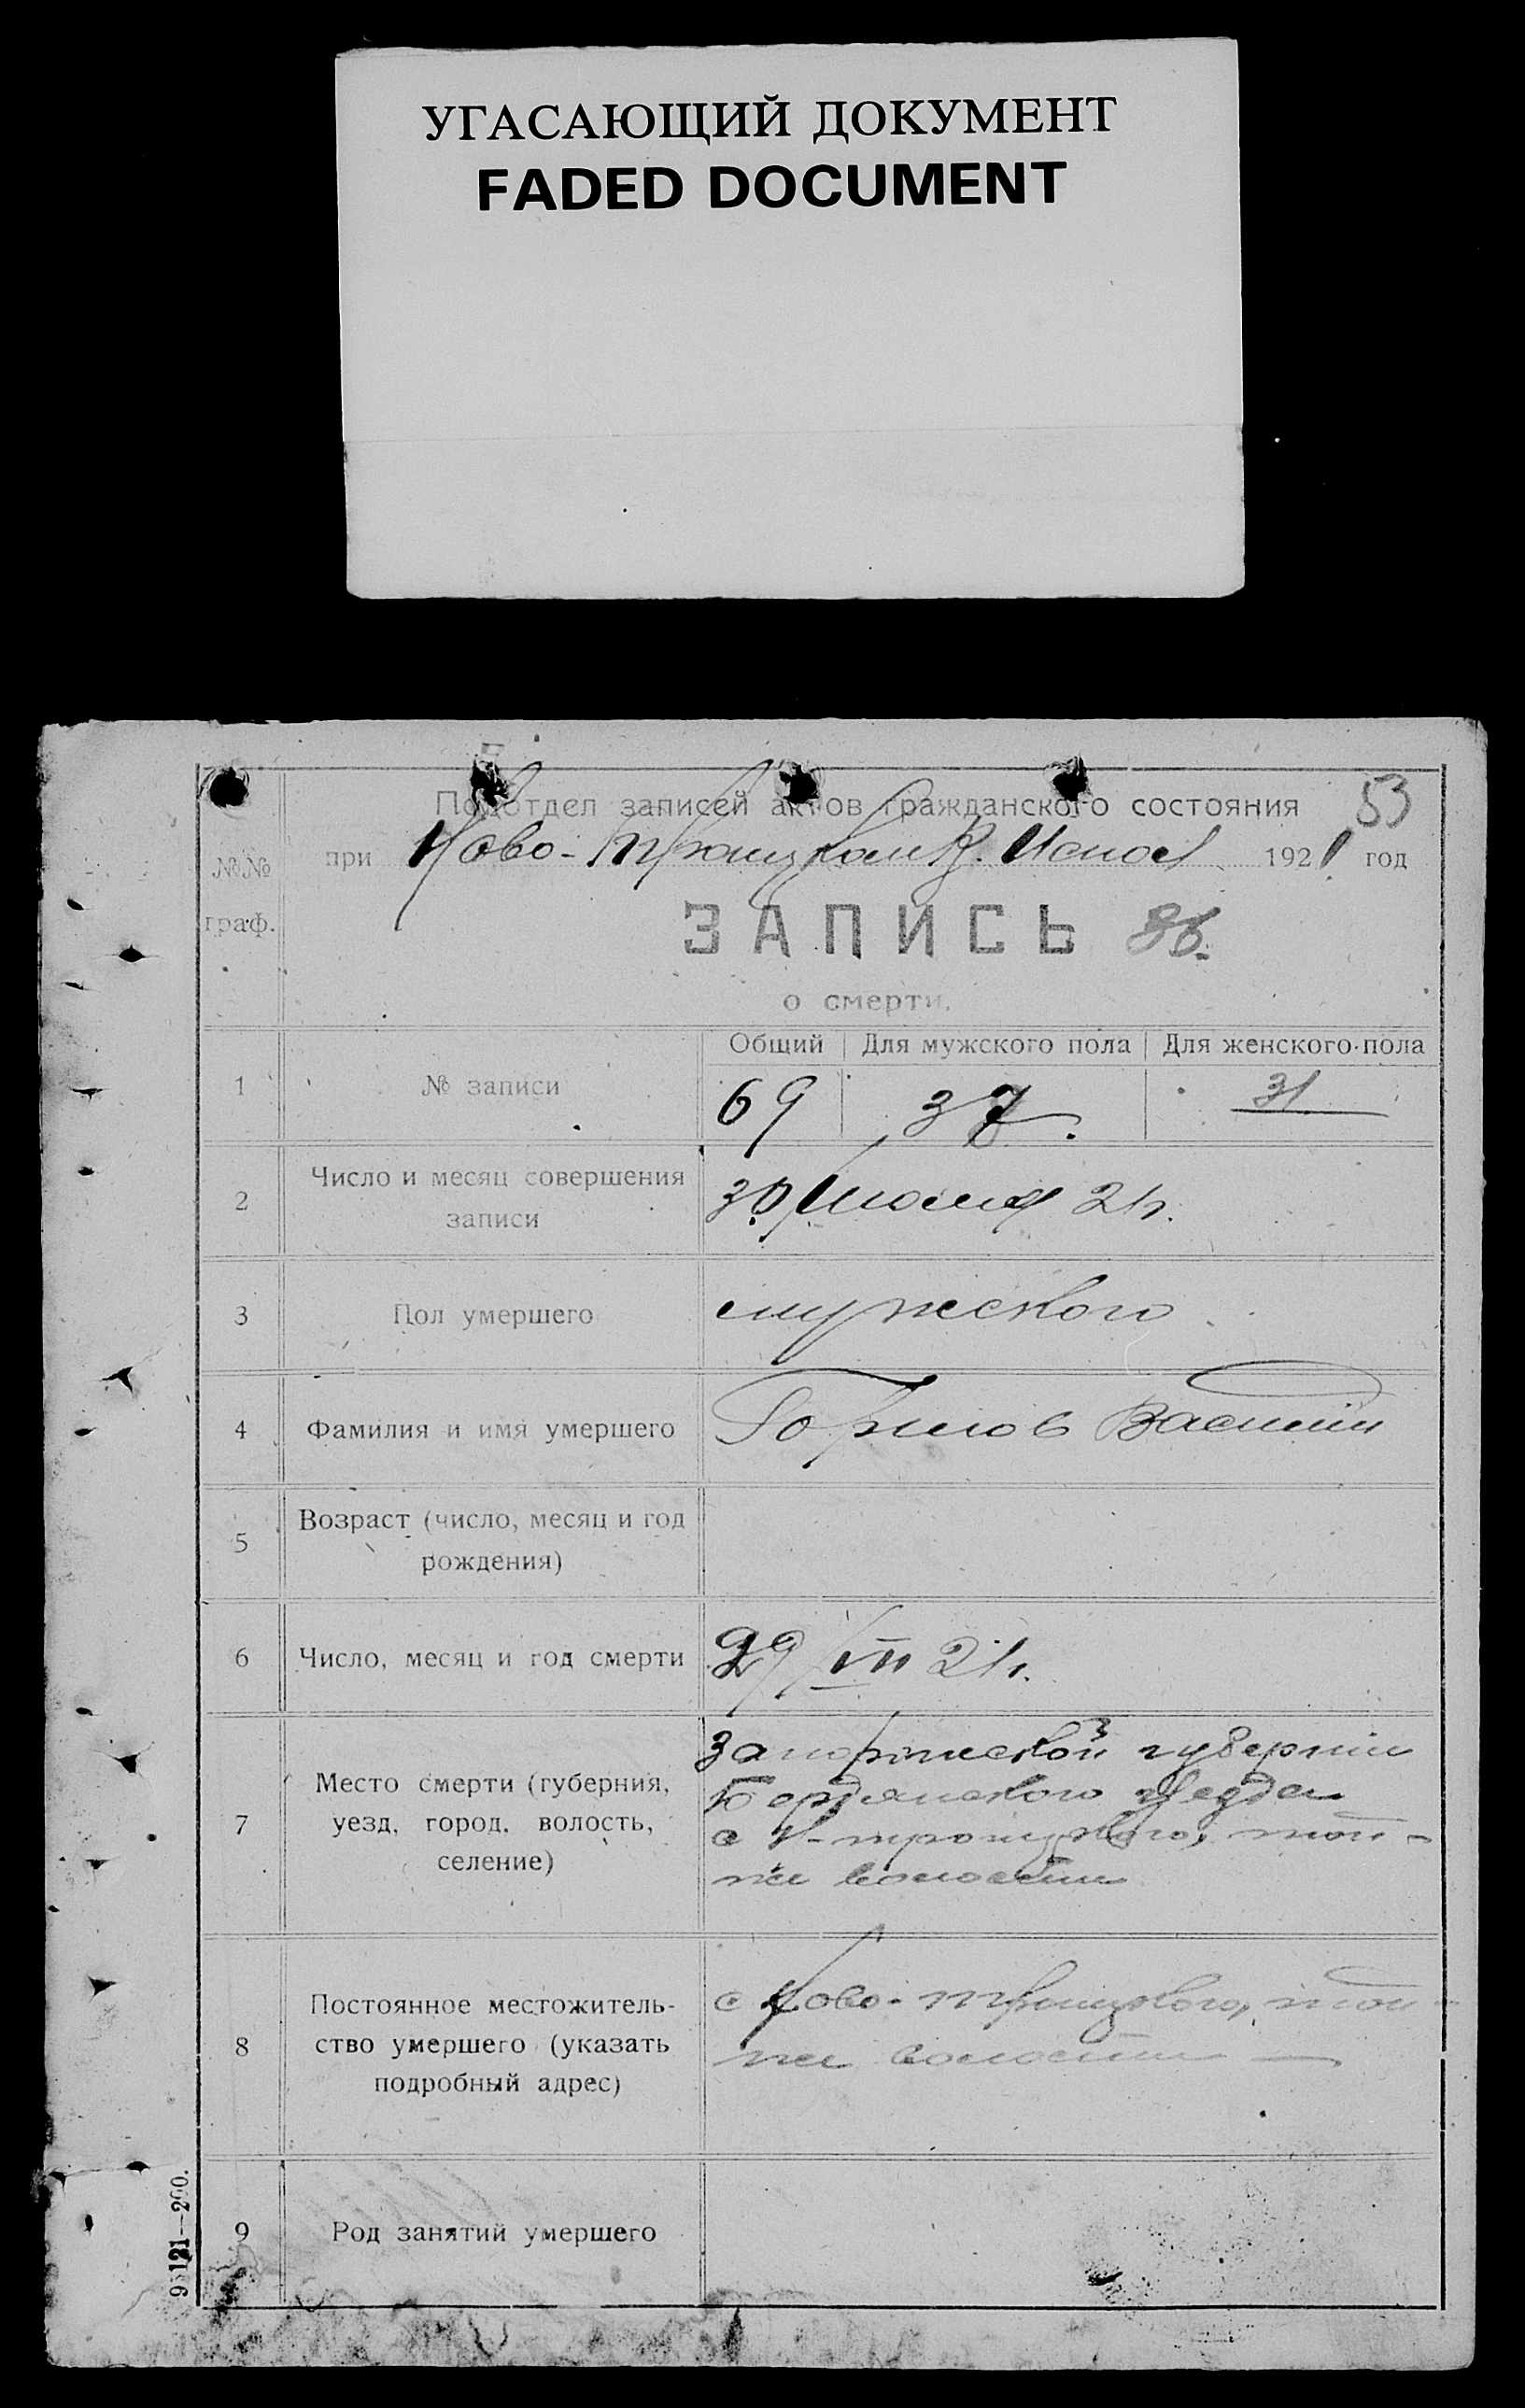 УГАСАЮЩИЙ ДОКУМЕНТ
FADED DOCUMENT
53
Подотдел записей актов гражданского состояния
при Ново-Троицком В. Испол 1921 год
№№ граф.
ЗАПИСЬ
о смерти.
Общий Для мужского пола Для женского пола
1 № записи 69 37. 31
2 Число и месяц совершения записи 30 Июля 21 г.
3 Пол умершего мужского
4 Фамилия и имя умершего Василий
5 Возраст (число, месяц и год рождения)
6 Число, месяц и год смерти 29 VII 21 г.
7 Место смерти (губерния, уезд, город, волость, селение)
Запорожской губернии
Бердянского уезда
с Н-троицкого, той-
же волости
8 Постоянное местожитель-
ство умершего (указать
подробный адрес)
с Ново-троицкого, той-
же волости —
9 Род занятий умершего